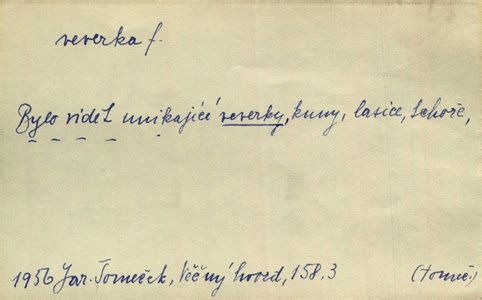 veverka f.
Bylo vidět unikající veverky, kuny, lasice, tchoře,
1956 Jar. Tomeček, Věčný hvozd, 158.3 (Tomeč.)